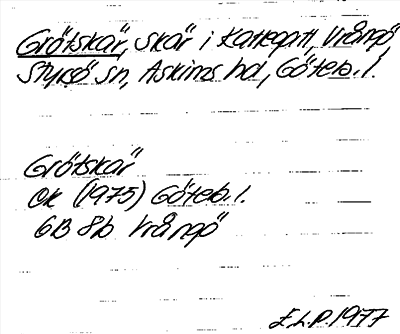 Grötskär, skär i Kattegatt, Vrångö
Styrsö sn, Askims hd, Göteb. l.
Grötskär
Ek (1975) Göteb. l.
6B 8b Vrångö
E.L.P. 1977